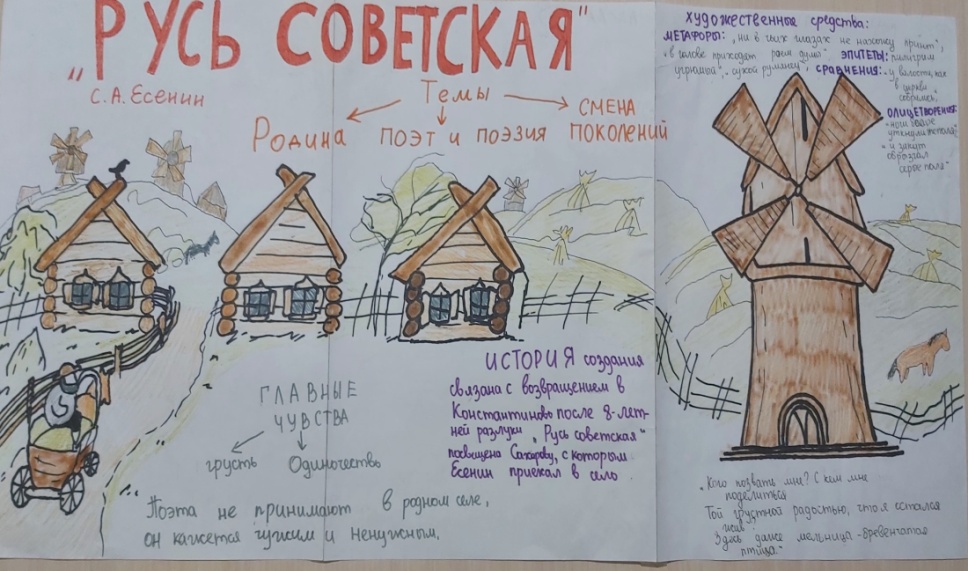 „РУСЬ СОВЕТСКАЯ"
С.А.Есенин
Темы
Родина
ПОЭТ И ПОЭЗИЯ
СМЕНА
ПОКОЛЕНИЙ
ХУДОЖЕСТВЕННЫЕ СРЕДСТВА:
МЕТАФОРЫ: „ни в чьих глазах не нахожу приют",
„в голове приходят роем думы" ЭПИТЕТЫ: пилигрим
угрюмый", „сухой румянец", СРАВНЕНИЯ: „у волости, как
в церкви
собрались"
ОЛИЦЕТВОРЕНИЯ:
и закат
обрызгал
серые поля"
ГЛАВНЫЕ
ЧУВСТВА
грусть
Одиночество
Поэта не принимают в родном селе,
он кажется чужим и ненужным.
ИСТОРИЯ создания
связана с возвращением в
Константиново после 8-лет-
ней разлуки. „Русь советская"
посвящена Сахарову, с которым
Есенин приехал в село
„Кого позвать мне? С кем мне
поделиться
Той грустной радостью, что я остался
жив
Здесь даже мельница - бревенчатая
птица"